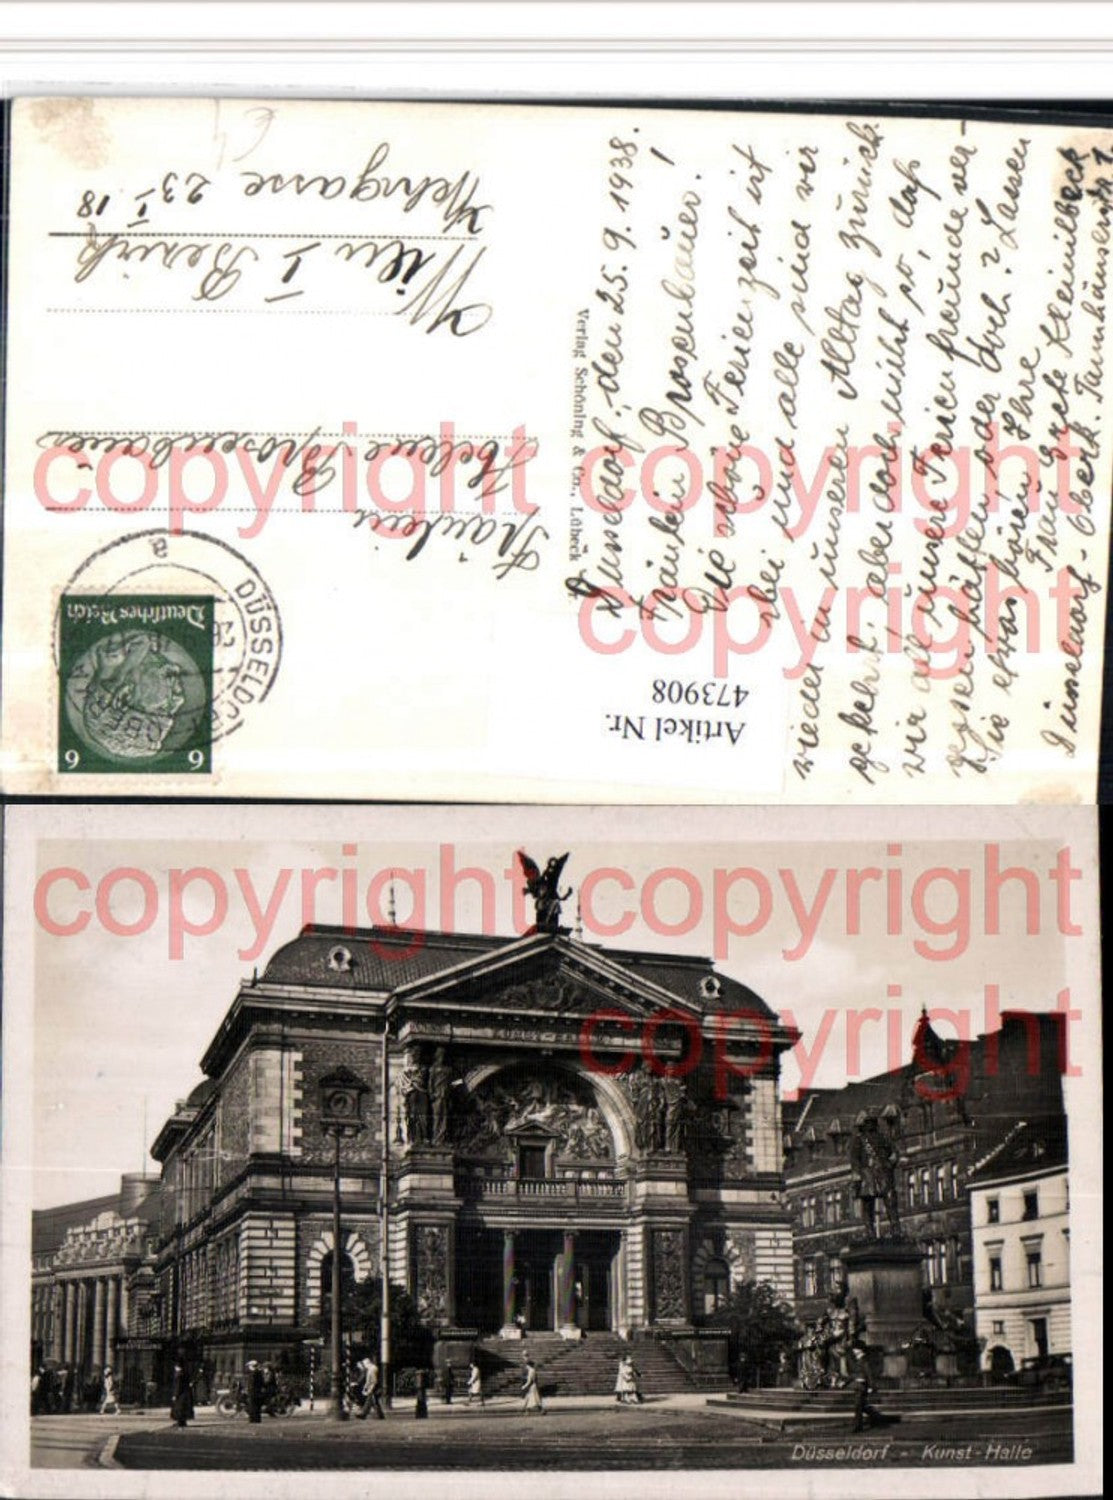 Düsseldorf, den 25. 9. 1938.
Fräulein Brosenbauer!
Die schöne Ferienzeit ist
vorbei und alle sind wir
wieder in unseren Alltag zurück
gekehrt, aber doch nicht so, daß
wir all unsere Ferienfreunde ver-
gessen hätten, oder doch? Lassen
Sie etwas hören! Ihre
Frau Grete Kleinilbeck
Düsseldorf - Oberk. Tannhäuserstr.
Verlag Schöning & Co., Lübeck
Fräulein
Helene Brosenbauer
Wien I Bezirk
Wehrgasse 23 I. 18
Deutsches Reich
6 6
DÜSSELDORF
a
Artikel Nr.
473908
copyright copyright
copyright
copyright copyright
copyright
copyright copyright
KUNST-HALLE
Düsseldorf - Kunst-Halle